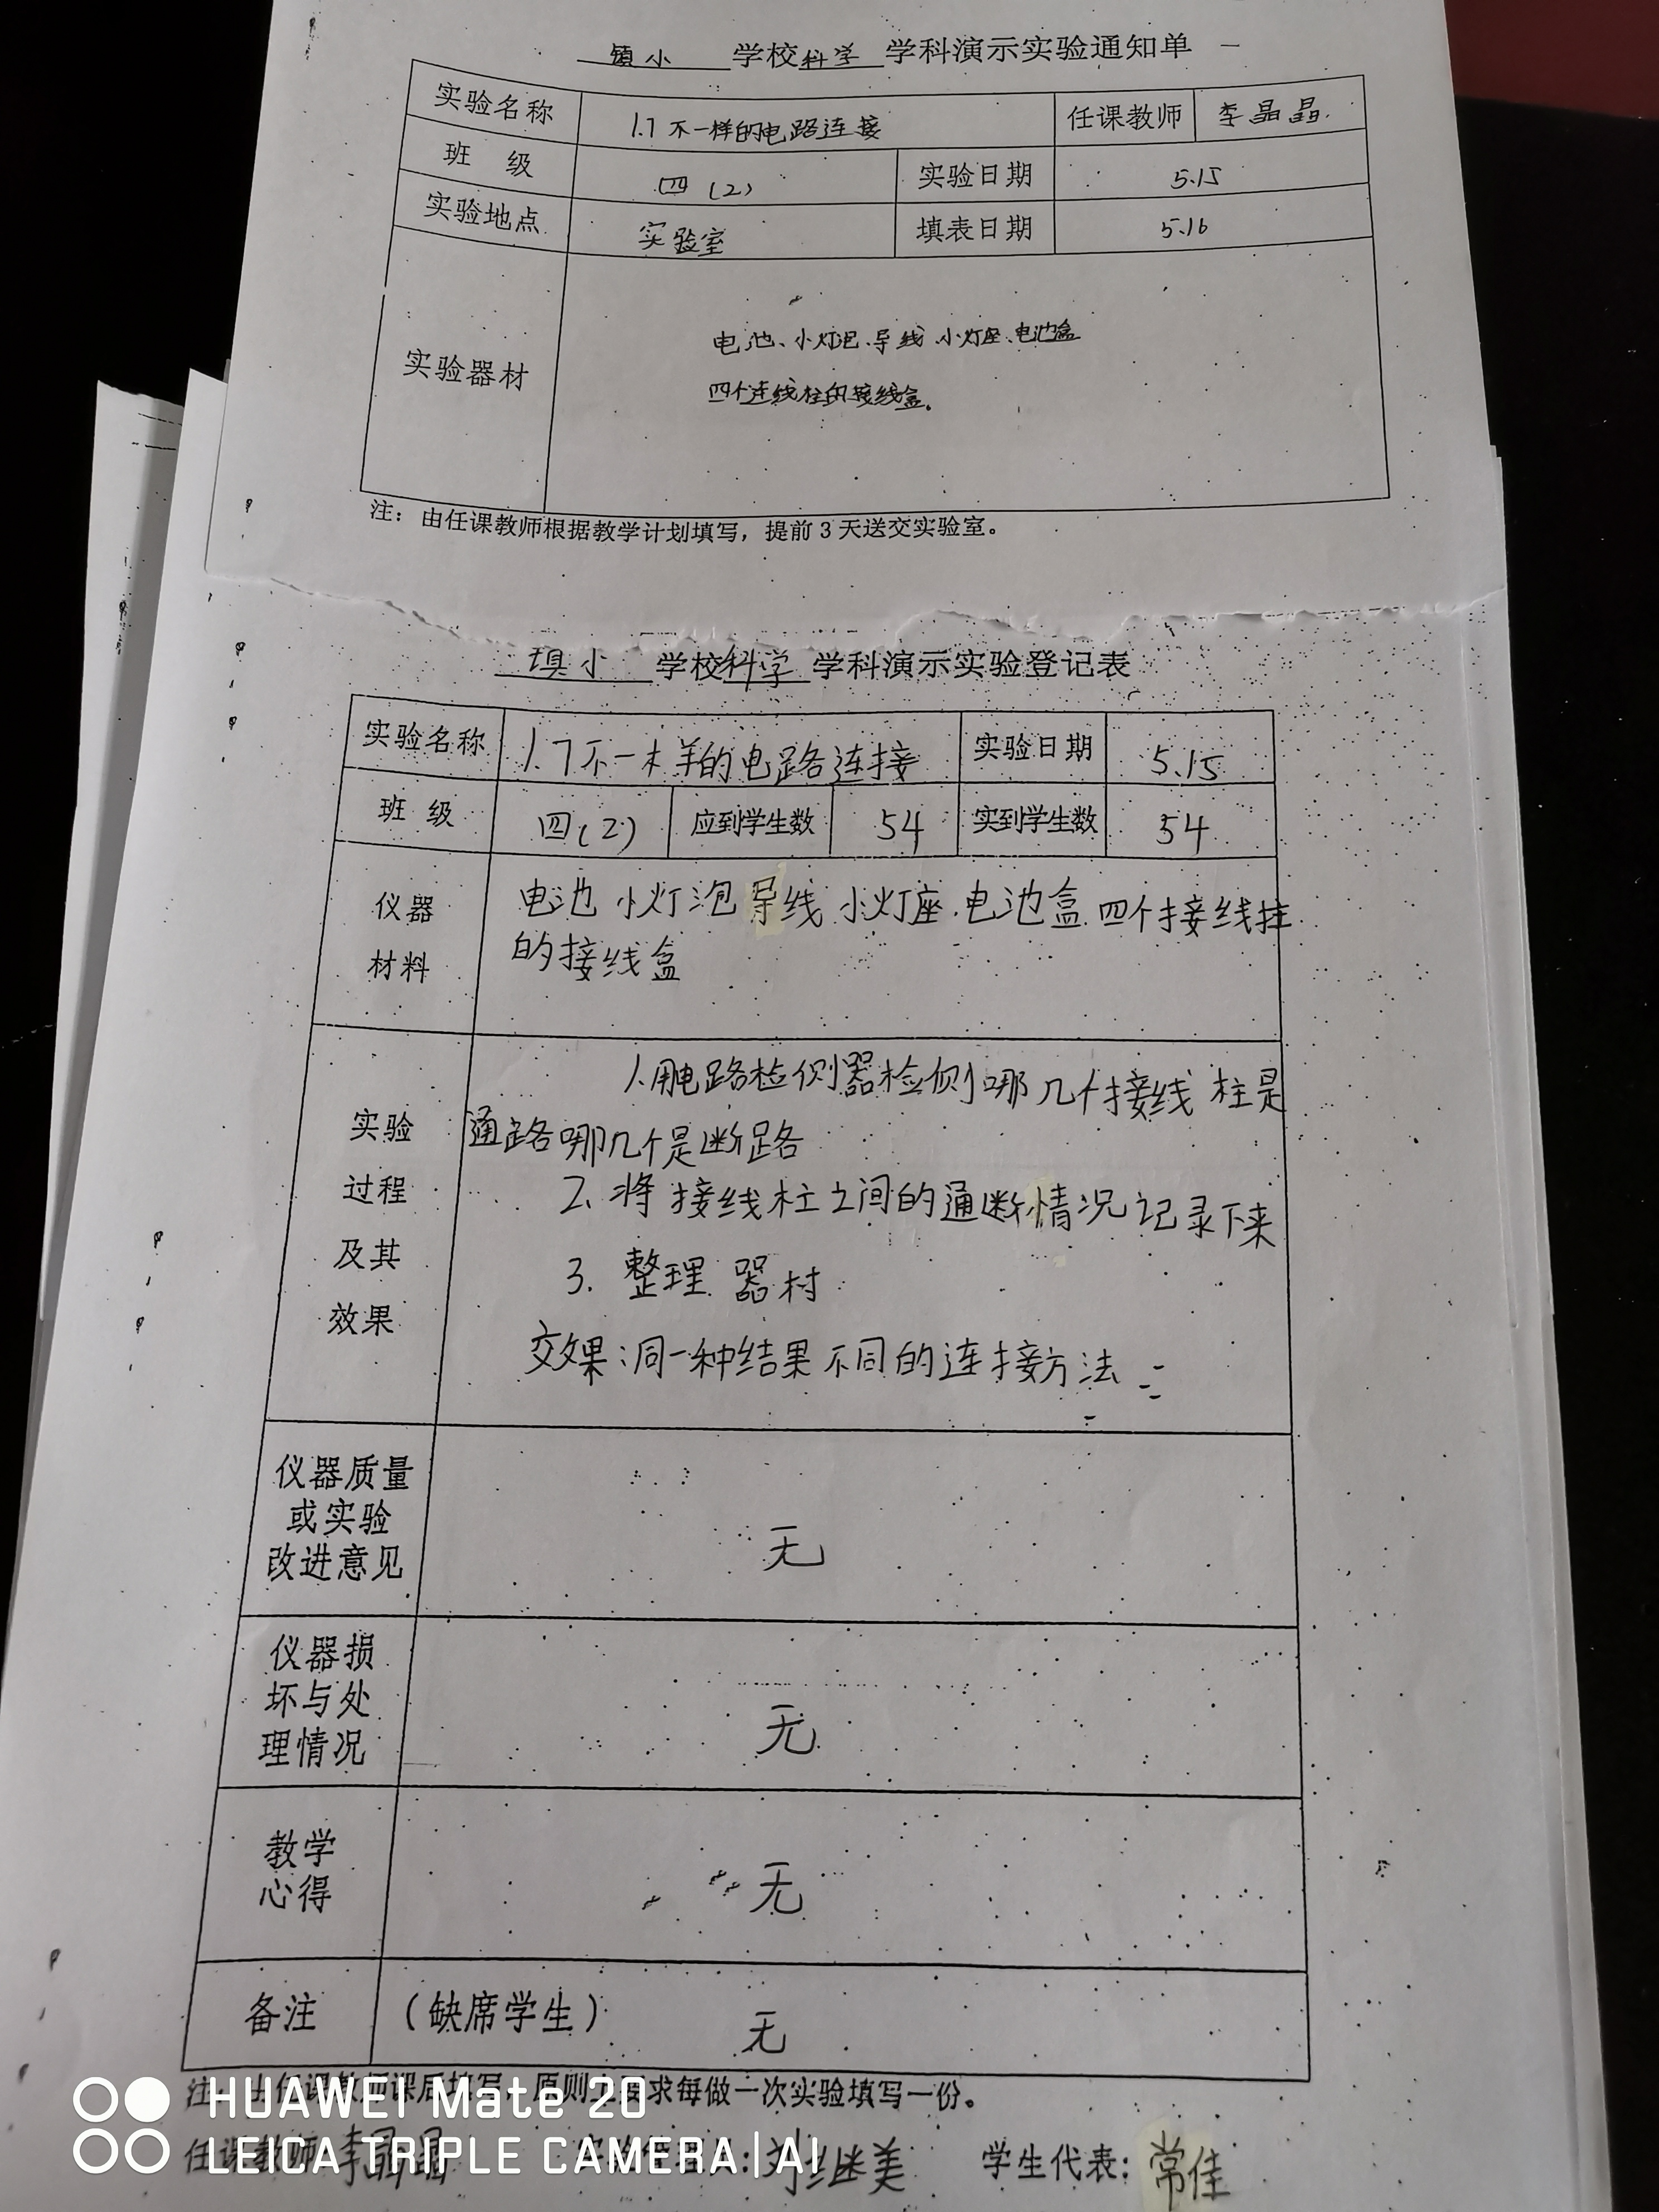 镇小 学校科学 学科演示实验通知单
实验名称 1.7不一样的电路连接 任课教师 李晶晶
班 级 四(2) 实验日期 5.15
实验地点 实验室 填表日期 5.16
实验器材
电池、小灯泡、导线、小灯座、电池盒
四个连线柱的接线盒。
注：由任课教师根据教学计划填写，提前3天送交实验室。
镇小 学校科学 学科演示实验登记表
实验名称 1.7不一样的电路连接 实验日期 5.15
班 级 四(2) 应到学生数 54 实到学生数 54
仪器
材料
电池 小灯泡 导线 小灯座.电池盒.四个接线拄
的接线盒
实验
过程
及其
效果
1.用电路检侧器检侧哪几个接线柱是
通路哪几个是断路
2.将接线柱之间的通断情况记录下来
3.整理器材
效果:同一种结果不同的连接方法
仪器质量
或实验
改进意见
无
仪器损
坏与处
理情况
无
教学
心得
无
备注 (缺席学生) 无
注： 课 课后填写 原则 要求每做一次实验填写一份。
任课教师 李晶晶 刘继美 学生代表: 常佳
HUAWEI Mate 20
LEICA TRIPLE CAMERA | AI